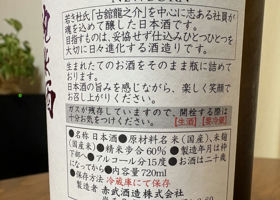 NEWBORN
若き杜氏「古舘龍之介」を中心に志ある社員が
魂を込めて醸した日本酒です。
目指すものは、妥協せず仕込みひとつひとつを
大切に日々進化する酒造りです。
生まれたてのお酒をそのまま瓶に詰めて
おります。
日本酒の旨みを感じながら、楽しく笑顔で
お召し上がりください。
ガスが残存していますので、開栓する際は
十分お気をつけください。【生酒】【要冷蔵】
●名称 日本酒●原材料名 米(国産)、米麹
(国産米)●精米歩合 60% ●製造年月は枠
下部へ●アルコール分15度●お酒は二十歳
になってから●内容量720ml
●保存方法 冷蔵庫にて保存
製造者 赤武酒造株式会社